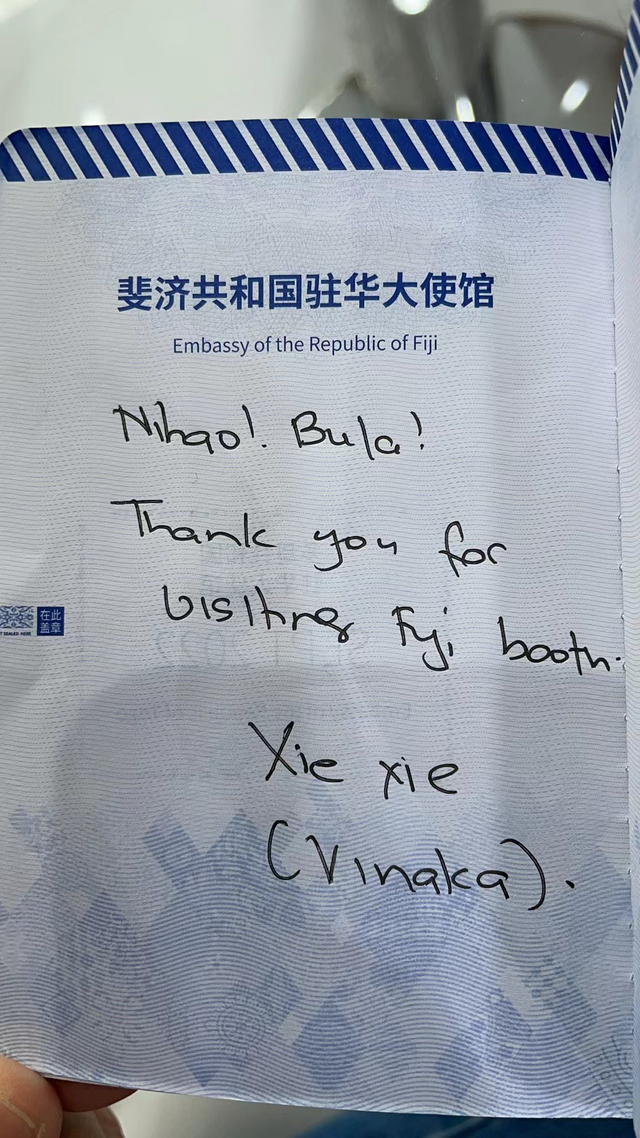 斐济共和国驻华大使馆
Embassy of the Republic of Fiji
Nihao! Bula!
Thank you for
visiting Fiji booth.
在此
盖章
Xie xie
(Vinaka).